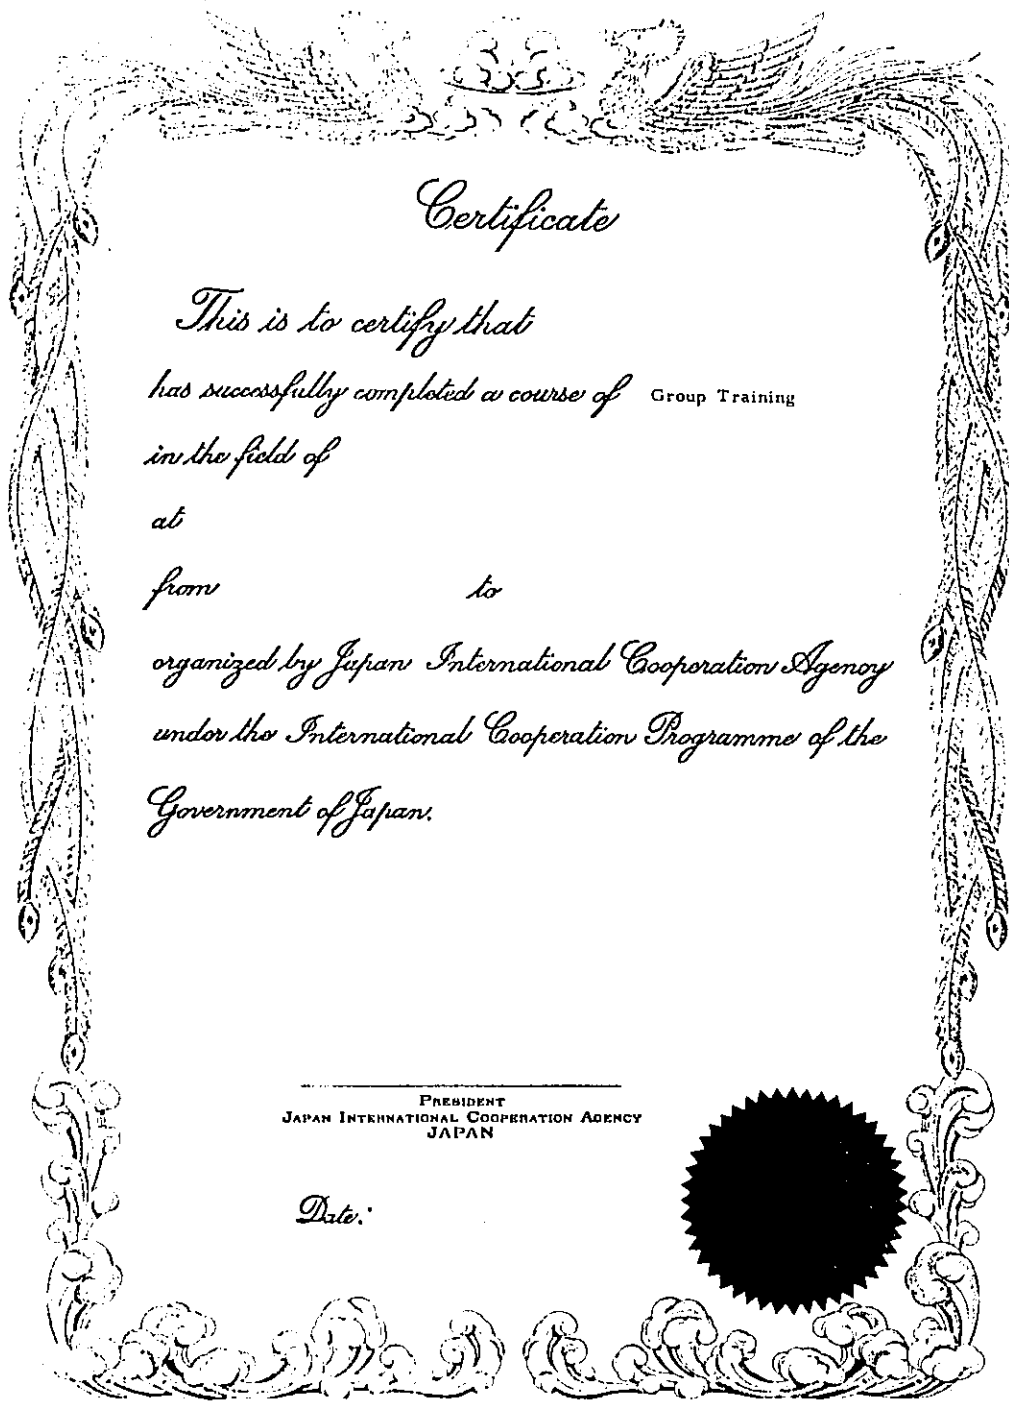 Certificate
This is to certify that
has successfully completed a course of Group Training
in the field of
at
from to
organized by Japan International Cooperation Agency
under the International Cooperation Programme of the
Government of Japan.
PRESIDENT
JAPAN INTERNATIONAL COOPERATION AGENCY
JAPAN
Date: